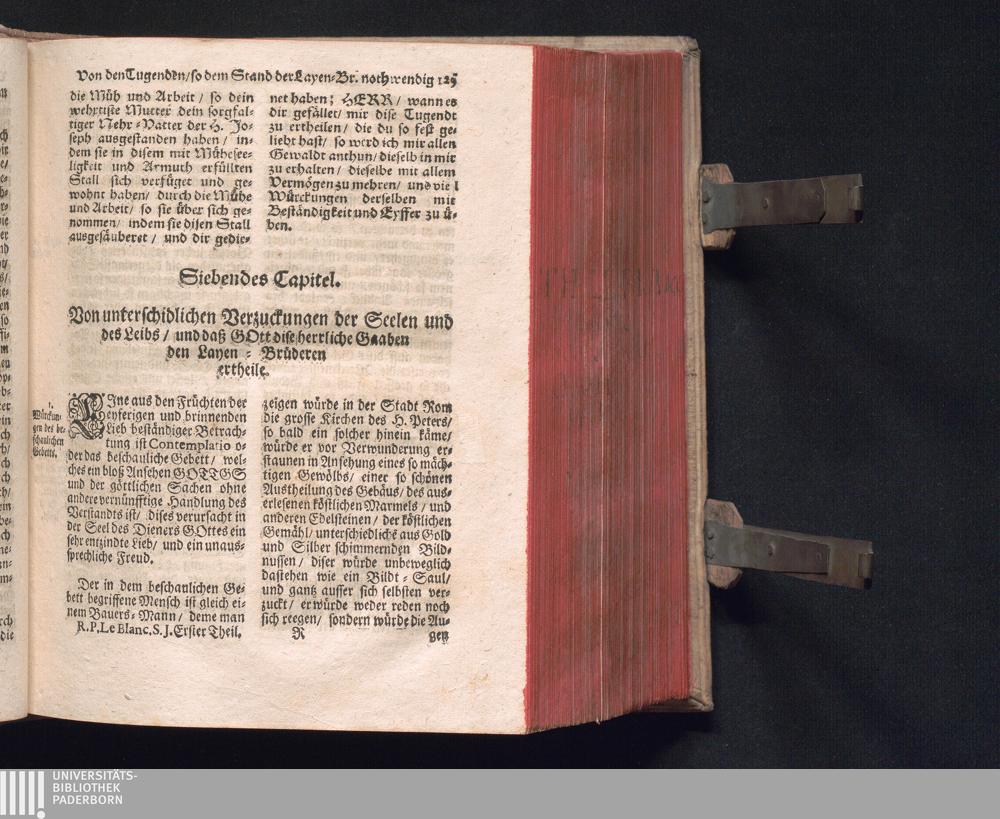 Von den Tugenden/ so dem Stand der Layen-Br. nothwendig 129
die Müh und Arbeit/ so dein
wehrtiste Mutter dein sorgfäl-
tiger Nehr-Vatter der H. Jo-
seph ausgestanden haben/ in-
dem sie in disem mit Mühesee-
ligkeit und Armuth erfüllten
Stall sich verfüget und ge-
wohnt haben/ durch die Mühe
und Arbeit/ so sie über sich ge-
nommen/ indem sie disen Stall
ausgesäuberet/ und dir gedie-
net haben; HERR/ wann es
dir gefället/ mir dise Tugendt
zu ertheilen/ die du so fest ge-
liebt hast/ so werd ich mir allen
Gewaldt anthun/ dieselb in mir
zu erhalten/ dieselbe mit allem
Vermögen zu mehren/ und vie l
Würckungen derselben mit
Beständigkeit und Eyffer zu ü-
ben.
Siebendes Capitel.
Von unterschidlichen Verzuckungen der Seelen und
des Leibs/ und daß GOtt dise herrliche Gaaben
den Layen-Brüderen
ertheile.
1.
Würckun-
gen des be-
schaulichen
Gebetts.
EIne aus den Früchten der
eyferigen und brinnenden
Lieb beständiger Betrach-
tung ist Contemplatio o-
der das beschauliche Gebett/ wel-
ches ein bloß Ansehen GOTTGS
und der göttlichen Sachen ohne
andere vernünfftige Handlung des
Verstandts ist/ dises verursacht in
der Seel des Dieners GOttes ein
sehr entzindte Lieb/ und ein unaus-
sprechliche Freud.
Der in dem beschaulichen Ge-
bett begriffene Mensch ist gleich ei-
nem Bauers-Mann/ deme man
R. P. Le Blanc. S. J. Erster Theil.
zeigen würde in der Stadt Rom
die grosse Kirchen des H. Peters/
so bald ein solcher hinein käme/
würde er vor Verwunderung er-
staunen in Ansehung eines so mäch-
tigen Gewölbs/ einer so schönen
Austheilung des Gebäus/ des aus-
erlesenen köstlichen Marmels/ und
anderen Edelsteinen/ der köstlichen
Gemähl/ unterschiedliche aus Gold
und Silber schimmernden Bild-
nussen/ diser würde unbeweglich
dastehen wie ein Bildt-Saul/
und gantz ausser sich selbsten ver-
zuckt/ er würde weder reden noch
sich reegen/ sondern würde die Au-
R gen
UNIVERSITÄTS-
BIBLIOTHEK
PADERBORN